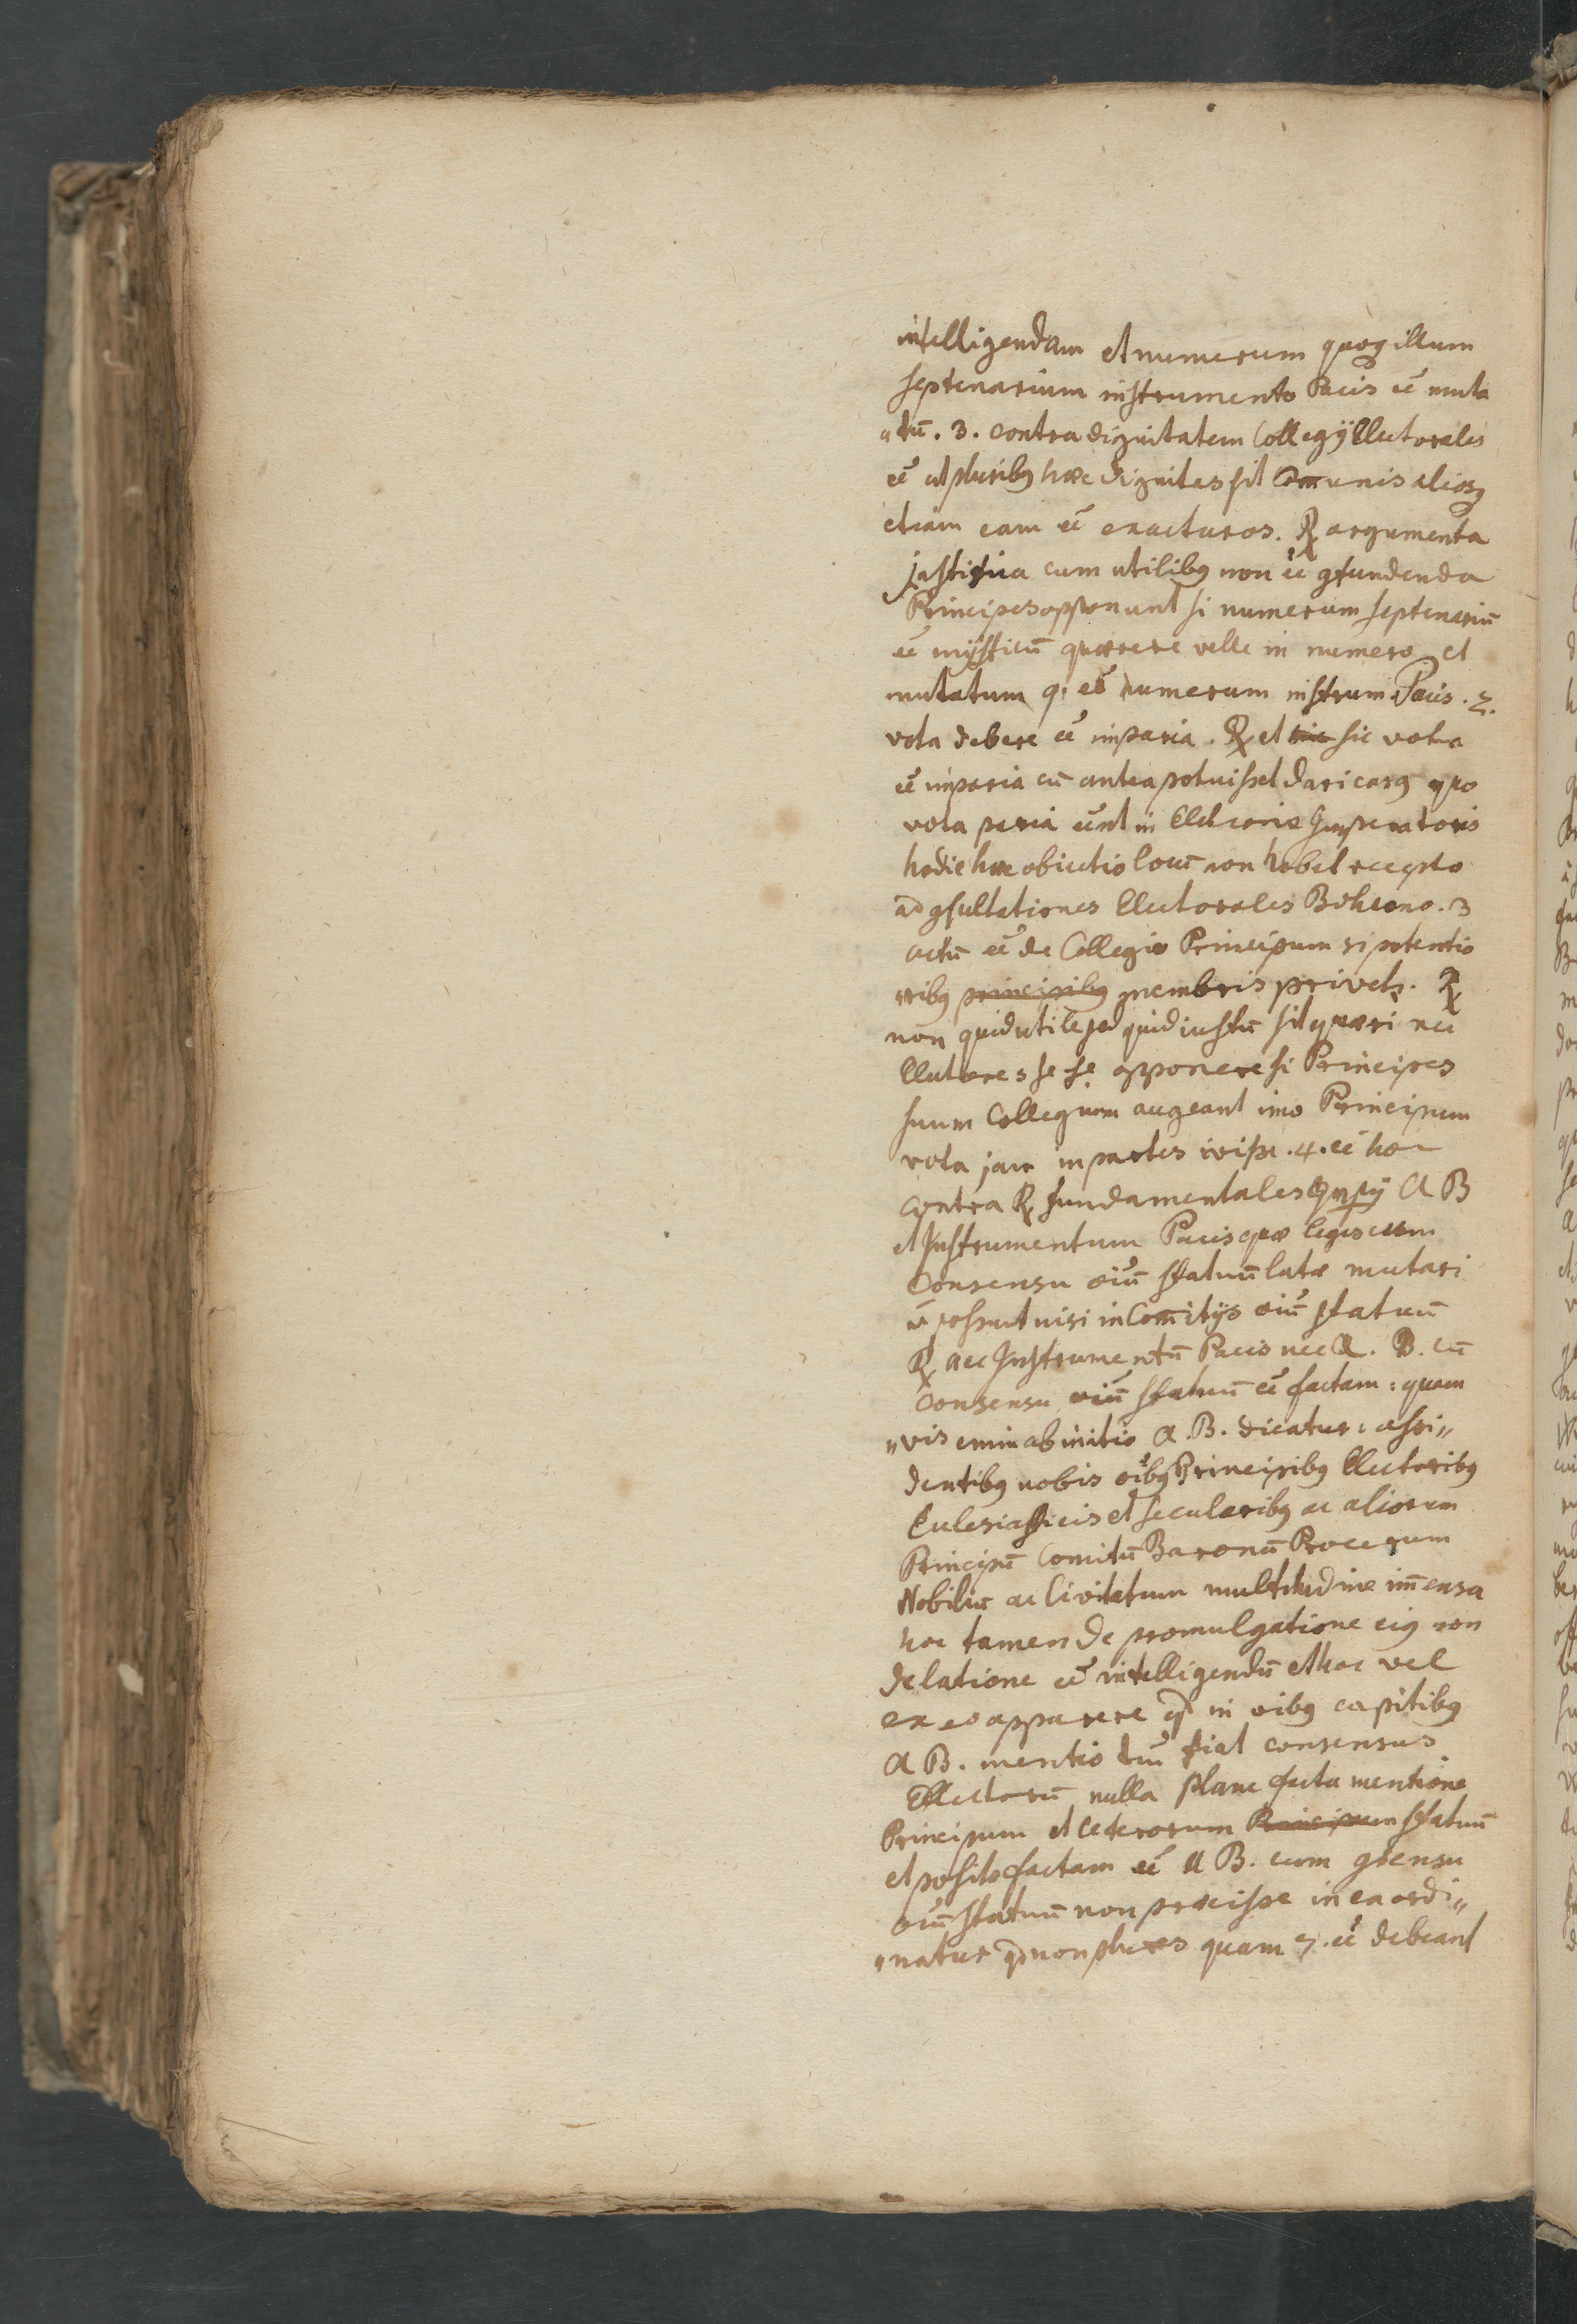 intelligendam et numerum quoq illum
septenarium instrumento Pacis eẽ muta
„tũ. 3. contra dignitatem Collegÿ Electorales
eẽ ut pluribq haec dignitas sit Com̄unis aliosq
etiam eam eẽ exacturos. ℞ argumenta
justitia cum utilibq non eẽ gfundenda
Principes opponunt si numerum septenariũ
eẽ mÿsticũ quærere velle in numero et
mutatum q. eẽ numerum instrum. Pacis. 2.
vota debere eẽ imparia. ℞ et sic vota
eẽ imparia cũ antea potuisset dari casq quo
vota paria eẽnt in Imperatoris
hodie haec obiectio locũ non habet recepto
ad gsultationes Electorales Bohemo. 3
actũ eẽ de Collegio Principum si potentio
ribq membris privets. ℞
non quid utile sed quid iustũ sit quæri nec
Electores se se opponere si Principes
suum Collegium augeant imo Principum
vota jam in partes ivisse. 4. eẽ hoc
contra fundamentales Impÿ A B
et Instrumentum Pacis quæ leges cum
Consensu oiũ statuũ latæ mutari
ñ possunt nisi in Comitÿs oiũ statuũ
℞ nec Instrumentũ Pacis nec A. B. cũ
Consensu oiũ statuũ eẽ factam: quam
„vis enim ab initio A. B. dicatur: assi„
dentibq nobis oibq Principibq Electoribq
Eclesiasticis et secularibq ac aliorum
Principũ Comitũ Baronũ Procerum
Nobiliũ ac Civitatum multitudine im̄ensa
hoc tamen de promulgatione eiq non
de latione eẽ intelligendũ et hoc vel
ex eo apparere qd in oibq capitibq
A B. mentio tm̃ fiat consensus
Electorũ nulla plane facta mentione
Principum et ceterorum Principum statuũ
et posito factam eẽ A B. cum gsensu
oiũ statuũ non præcisse in ea ordi„
„natur qd non plures quam 7. eẽ debeant